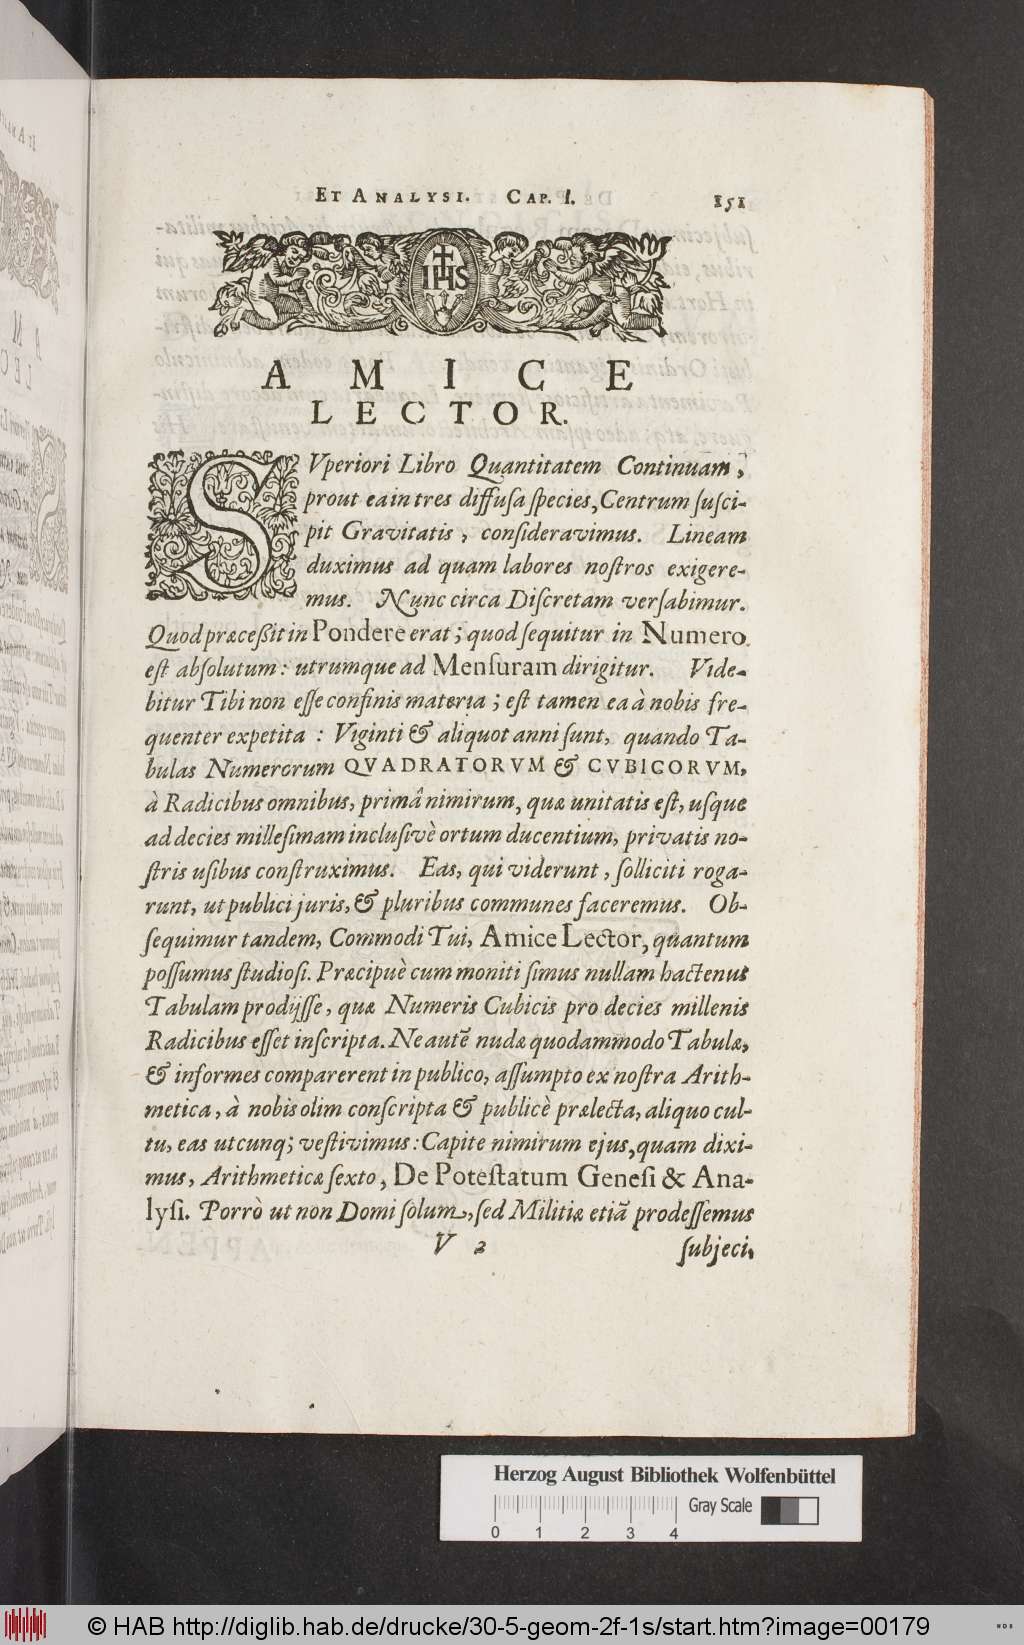 ET ANALYSI. CAP. I. 151
IHS
AMICE
LECTOR.
SVperiori Libro Quantitatem Continuam,
prout ea in tres diffusa species, Centrum susci-
pit Gravitatis, consideravimus. Lineam
duximus ad quam labores nostros exigere-
mus. Nunc circa Discretam versabimur.
Quod præceßit in Pondere erat; quod sequitur in Numero
est absolutum: utrumque ad Mensuram dirigitur. Vide-
bitur Tibi non esse confinis materia; est tamen ea à nobis fre-
quenter expetita: Viginti & aliquot anni sunt, quando Ta-
bulas Numerorum QVADRATORVM & CVBICORVM,
à Radicibus omnibus, primâ nimirum, quæ unitatis est, usque
ad decies millesimam inclusivè ortum ducentium, privatis no-
stris usibus construximus. Eas, qui viderunt, solliciti roga-
runt, ut publici juris, & pluribus communes faceremus. Ob-
sequimur tandem, Commodi Tui, Amice Lector, quantum
possumus studiosi. Præcipuè cum moniti simus nullam hactenus
Tabulam prodijsse, quæ Numeris Cubicis pro decies millenis
Radicibus esset inscripta. Ne autē nudæ quodammodo Tabulæ,
& informes comparerent in publico, assumpto ex nostra Arith-
metica, à nobis olim conscripta & publicè prælecta, aliquo cul-
tu, eas utcunq; vestivimus: Capite nimirum ejus, quam dixi-
mus, Arithmeticæ sexto, De Potestatum Genesi & Ana-
lysi. Porrò ut non Domi solum, sed Militiæ etiā prodessemus
V 2 subjeci-
Herzog August Bibliothek Wolfenbüttel
Gray Scale
0 1 2 3 4
© HAB http://diglib.hab.de/drucke/30-5-geom-2f-1s/start.htm?image=00179